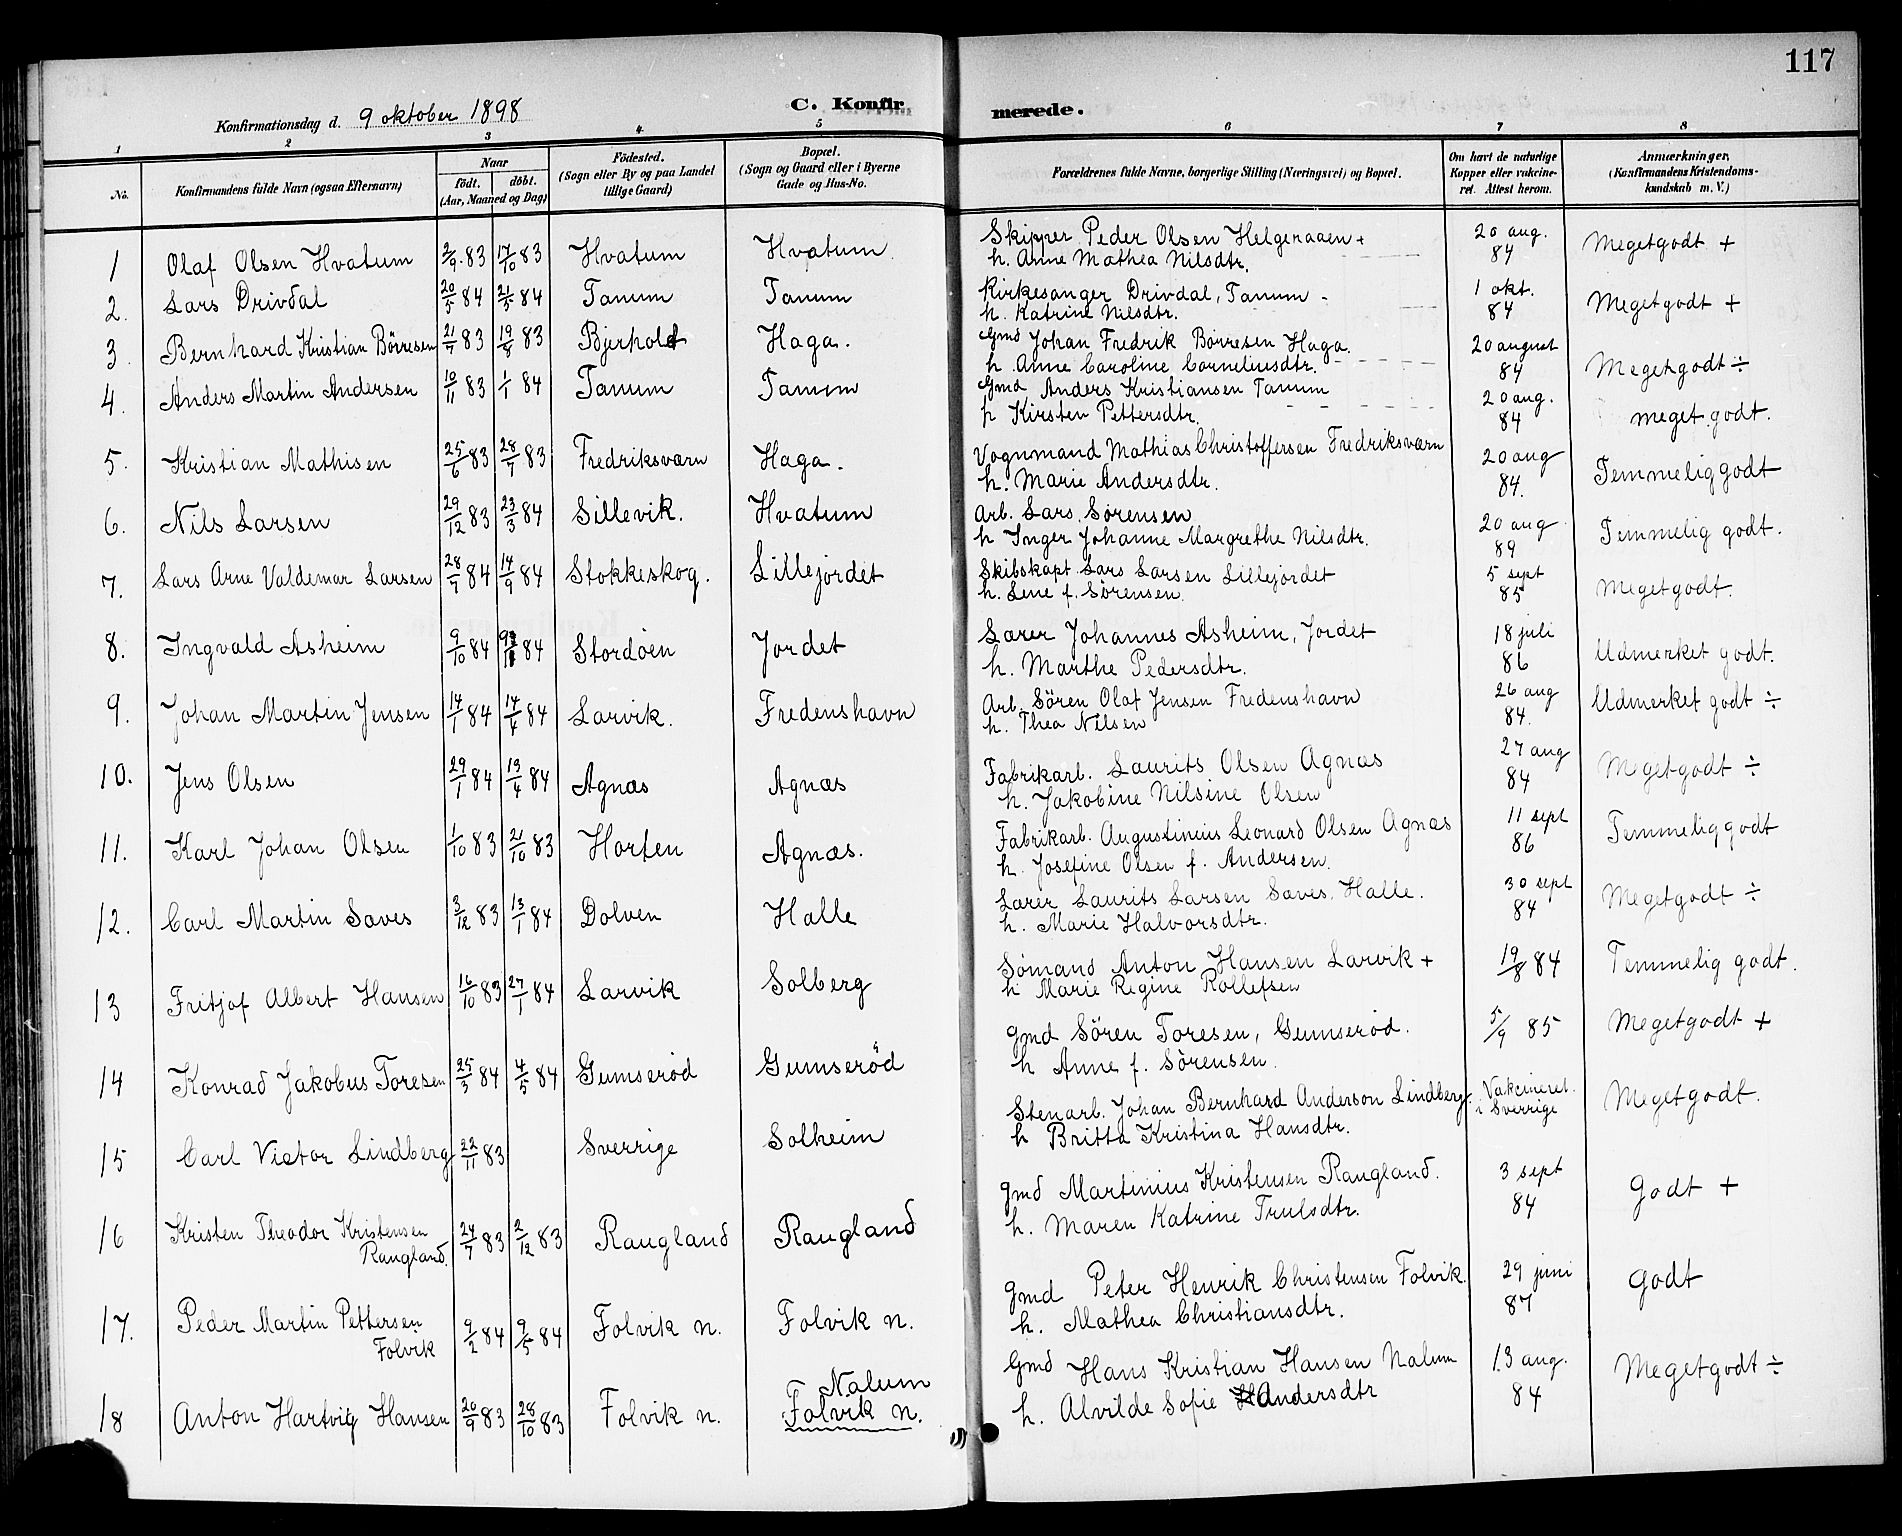 117
C. Konfir merede.
Konfirmationsdag d. 9 oktober 1898
1 2 3 4. 5 6 7 8
No. Konfirmandens fulde Navn (ogsaa Efternavn) Naar födt. döbt. (Aar, Maaned og Dag) Födested. (Sogn eller By og paa Landet tillige Gaard) Bopæl. (Sogn og Gaard eller i Byerne Gade og Hus-No. Forældrenes fulde Navne, borgerlige Stilling (Næringsvei) og Bopæl. Om havt de naturlige Kopper eller vakcineret. Attest herom. Anmærkninger, (Konfirmandens Kristendomskundskab m. V.)
1 Olaf Olsen Hvatum 2/9 83 17/10 83 Hvatum Hvatum Skipper Peder Olsen Helgeraaen + 20 aug. Megetgodt +
h. Anne Mathea Nilsdtr. 84
2. Lars Drivdal 20/5 84 21/5 84 Tanum Tanum Kirkesanger Drivdal, Tanum 1 okt. Megetgodt +
h. Katrine Nilsdtr. 84
3. Bernhard Kristian Börresen 21/7 83 19/8 83 Bjerholt Haga. Gmd Johan Fredrik Börresen Haga. 20 august Megetgodt ÷
h. Anne Caroline Corneliusdtr. 84
4. Anders Martin Andersen 10/11 83 1/1 84 Tanum Tanum Gmd Anders Kristiansen Tanum 20 aug. meget godt.
h Kirsten Pettersdtr. 84
5. Kristian Mathisen 25/6 83 28/7 83 Fredriksværn Haga. Vognmand Mathias Christoffersen Fredriksværn 20 aug Temmelig godt
h. Marie Andersdtr. 84.
6. Nils Larsen 29/12 83 23/3 84 Sillevik. Hvatum Arb. Lars Sørensen 20 aug Temmelig godt.
h Inger Johanne Margrethe Nilsdtr. 89
7. Lars Arne Valdemar Larsen 28/7 84 14/9 84 Stokkeskog. Lillejordet Skibskapt. Lars Larsen Lillejordet 5 sept Megetgodt.
h. Lene f. Sörensen. 85
8. Ingvald Asheim 9/10 84 84 Stordöen Jordet Lærer Johannes Asheim, Jordet 18 juli Udmerket godt.
h. Marthe Pedersdtr. 86
9. Johan Martin Jensen 14/1 84 14/4 84 Larvik. Fredenshavn Arb. Sören Olaf Jensen Fredenshavn 26 aug Udmerket godt ÷
h. Thea Nilsen 84.
10. Jens Olsen 29/1 84 13/4 84 Agnæs Agnæs Fabrikarb. Laurits Olsen Agnæs 27 aug Megetgodt ÷
h. Jakobine Nilsine Olsen 84
11. Karl Johan Olsen 1/10 83 21/10 83 Horten Agnæs. Fabrikarb. Augustinius Leonard Olsen Agnæs 11 sept Temmelig godt
h. Josefine Olsen f. Andersen. 86
12. Carl Martin Saves 3/12 83 13/1 84 Dolven Halle Lærer Laurits Larsen Saves, Halle. 30 sept Megetgodt ÷
h. Marie Halvorsdtr. 84
13 Fritjof Albert Hansen 16/10 83 27/1 84 Larvik Solberg Sömand Anton Hansen Larvik + 19/8 84 Temmelig godt.
h Marie Regine Rollefsen
14 Konrad Jakobus Toresen 25/3 84 4/5 84 Gumseröd Gumseröd gmd Sören Toresen, Gumseröd. 5/9 85 Megetgodt +
h Anne f. Sörensen.
15 Carl Victor Lindberg 22/11 83 Sverrige Solheim Stenarb. Johan Bernhard Anderson Lindberg. Vakcineret Megetgodt.
h Britta Kristina Hansdtr. i Sverrige
16 Kristen Theodor Kristensen Raugland. 24/7 83 2/12 83 Raugland Raugland gmd Martinius Kristensen Raugland. 3 sept Godt +
h. Maren Katrine Trulsdtr. 84
17. Peder Martin Pettersen Folvik 9/2 84 9/5 84 Folvik n. Folvik n. Gmd Peter Henrik Christensen Folvik. 29 juni Godt
h. Mathea Christiansdtr. 87
18 Anton Hartvig Hansen 20/9 83 28/10 83 Folvik n. Nalum Folvik n. Gmd Hans Kristian Hansen Nalum 13 aug. Megetgodt ÷
h. Alvilde Sofie Andersdtr 84